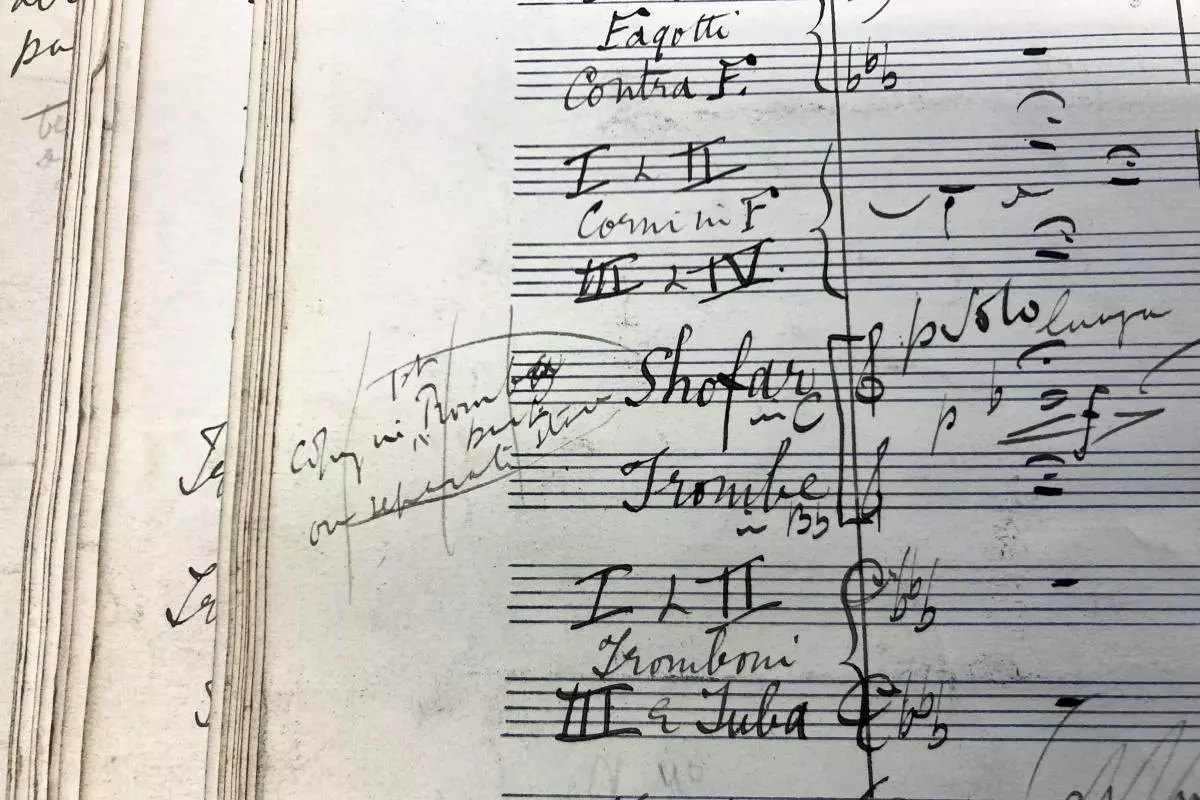 pa
Fagotti
Contra F.
I & II
Corni in F
III & IV.
p Solo lunga
Shofar
in C
p
f
Copy in Tromb
part
on separate
Trombe
in Bb
I & II
Tromboni
III & Tuba